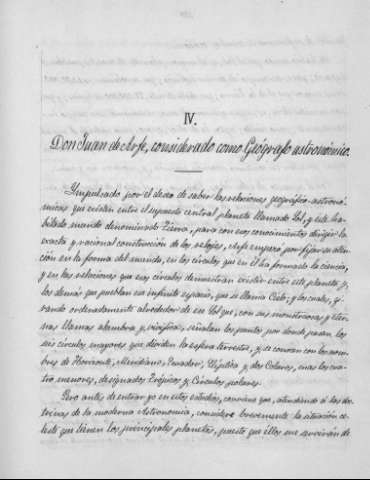 IV.
Don Juan de Arfe, considerado como Geógrafo astronómico.
Impulsado por el deseo de saber las relaciones geográfico-astronó-
micas que existen entre el supuesto central planeta llamado Sol, y este ha-
bitado mundo denominado Tierra, para con esos conocimientos dirigir la
exacta y racional construcción de los relojes, Arfe empezó por fijar su aten-
ción en la forma del mundo, en los círculos que en él ha formado la ciencia,
y en las relaciones que esos círculos demuestran existir entre este planeta y
los demás que pueblan ese infinito espacio, que se llama Cielo; y los cuales, gi-
rando ordenadamente alrededor de ese Sol que, con sus monstruosas y eter-
nas llamas alumbra y vivifica, señalan los puntos por donde pasan los
seis círculos mayores que dividen la esfera terrestre, y se conocen con los nom-
bres de Horizonte, Meridiano, Ecuador, Eclíptica y dos Coluros, mas los cua-
tro menores, designados Trópicos y Círculos polares.
Pero antes de entrar yo en estos estudios, conviene que, atendiendo á las doc-
trinas de la moderna Astronomía, considere brevemente la situación ce-
leste que tienen los principales planetas, puesto que ellos me servirán de